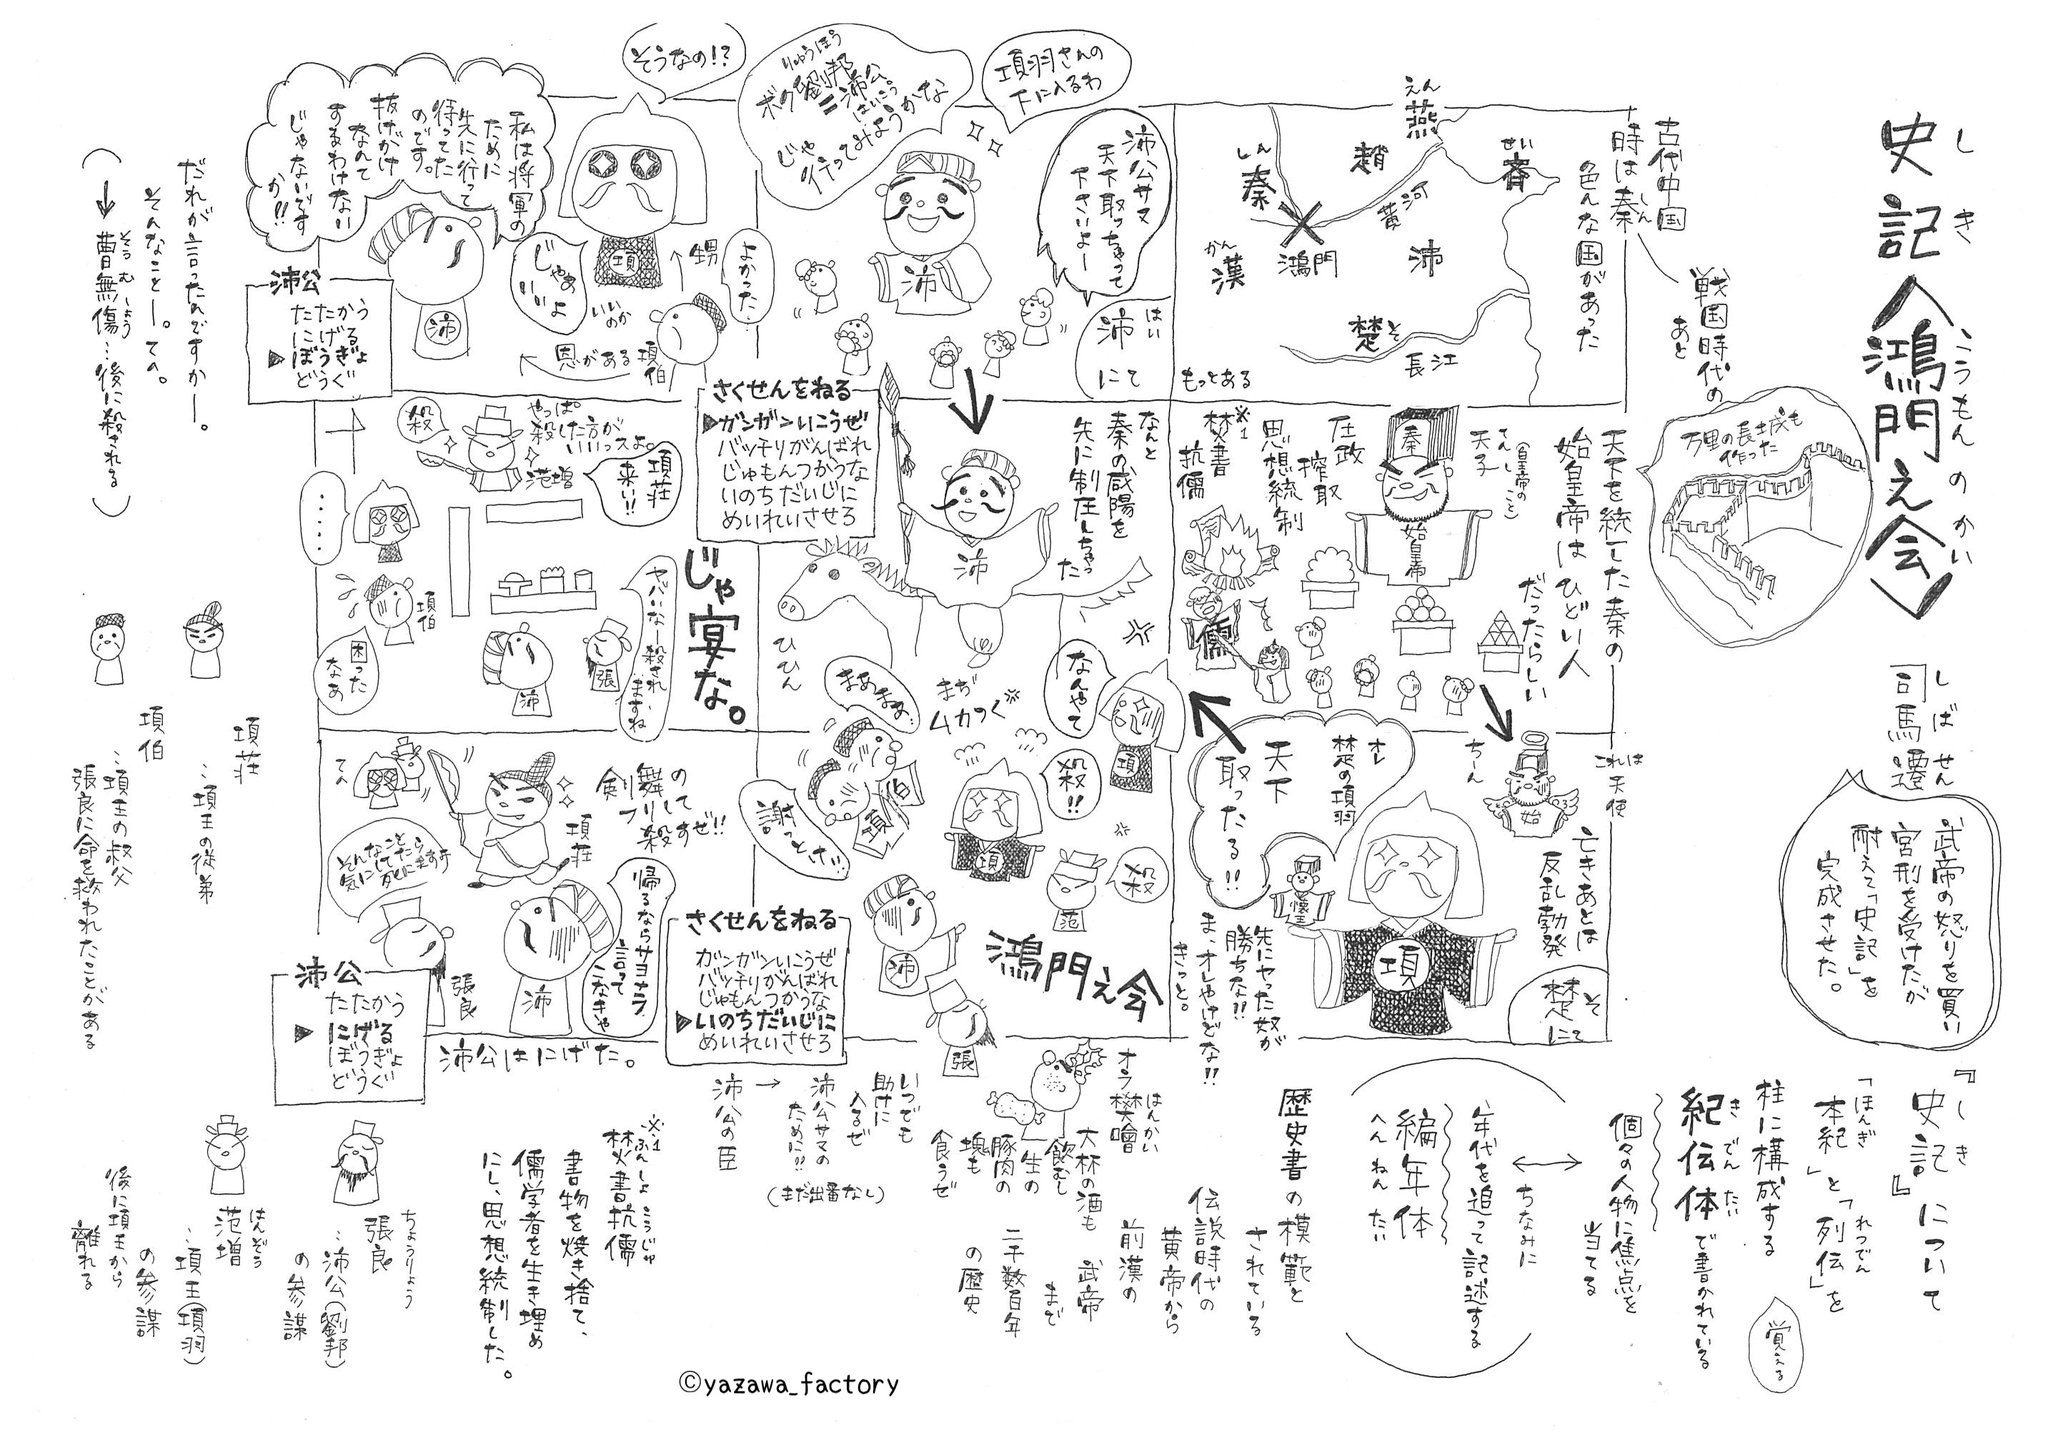 史記〈鴻門之会〉
しき こうもんのかい
司馬遷
しばせん
武帝の怒りを買い
宮刑を受けたが
耐えて「史記」を
完成させた。
古代中国
時は秦
しん
色んな国があった
戦国時代の
あと
燕
えん
趙
斉
せい
秦
しん
黄河
鴻門
沛
漢
かん
楚
そ
長江
もっとある
万里の長城も
作った
天下を統一した秦の
始皇帝はひどい人
だったらしい
天子
てんし
(皇帝のこと)
秦
始皇帝
圧政
搾取
思想統制
焚書
※1
抗儒
儒
これは天使
ちーん
始
亡きあとは
反乱勃発
楚にて
そ
オレ
楚の項羽
天下
取ったる!!
懐王
項
先にやった奴が
勝ちな!!
ま、オレやけどな!!
きっと。
沛にて
はい
沛公サマ
天下取っちゃって
下さいよー
項羽さんの
下に入るわ
ボク劉邦
りゅうほう
=沛公。
はいこう
じゃ
行ってみようかな
沛
なんと
秦の咸陽を
先に制圧しちゃっ
た
沛
ひひん
さくせんをねる
▶ガンガンいこうぜ
バッチリがんばれ
じゅもんつかうな
いのちだいじに
めいれいさせろ
なんやて
項
まぢ
ムカつく
殺!!
項
殺
范
まあまあ、
伯
項
謝っとけ!!
沛
張
鴻門之会
さくせんをねる
ガンガンいこうぜ
バッチリがんばれ
じゅもんつかうな
▶いのちだいじに
めいれいさせろ
そうなの!?
項
じゃあ
いいよ
甥
よかった…
項伯
恩がある
いいのか
私は将軍の
ために
先に行って
待ってた
のです。
抜けがけ
なんて
するわけない
じゃないです
か!!
沛
沛公
たたかう
にげる
▶ぼうぎょ
どうぐ
じゃ宴な。
やっぱ
殺した方が
いいっスよ。
殺
范増
項荘
来い!!
……
項伯
困った
なあ
沛
張
ヤバいなー殺され
ますね
剣舞の
フリして
殺すぜ!!
項荘
てん
そんなことしてたら
気にします
張良
沛
帰るならサヨナラ
言って
こなきゃ
沛公
たたかう
▶にげる
ぼうぎょ
どうぐ
沛公はにげた。
だれが言ったんですかー。
そんなことー。てへ。
(→曹無傷…後に殺される)
そうむしょう
項荘
…項王の従弟
項伯
…項王の叔父
張良に命を救われたことがある
『史記』について
しき
「本紀」と「列伝」を
ほんぎ れつでん
柱に構成する
紀伝体で書かれている
きでんたい
個々の人物に焦点を
当てる
覚える
ちなみに
年代を追って記述する
編年体
へんねんたい
歴史書の模範と
されている
伝説時代の
黄帝から
前漢の
武帝
まで
二千数百年
の歴史
オラ樊噲
はんかい
大杯の酒も
飲むし
生の
豚肉の
塊も
食うぜ
いつでも
助けに
入るぜ
沛公サマの
ために!!
(まだ出番なし)
→沛公の臣
※1
焚書抗儒
ふんしょこうじゅ
書物を焼き捨て、
儒学者を生き埋め
にし、思想統制した。
張良
ちょうりょう
…沛公(劉邦)
の参謀
范増
はんぞう
…項王(項羽)
の参謀
後に項王から
離れる
©yazawa_factory